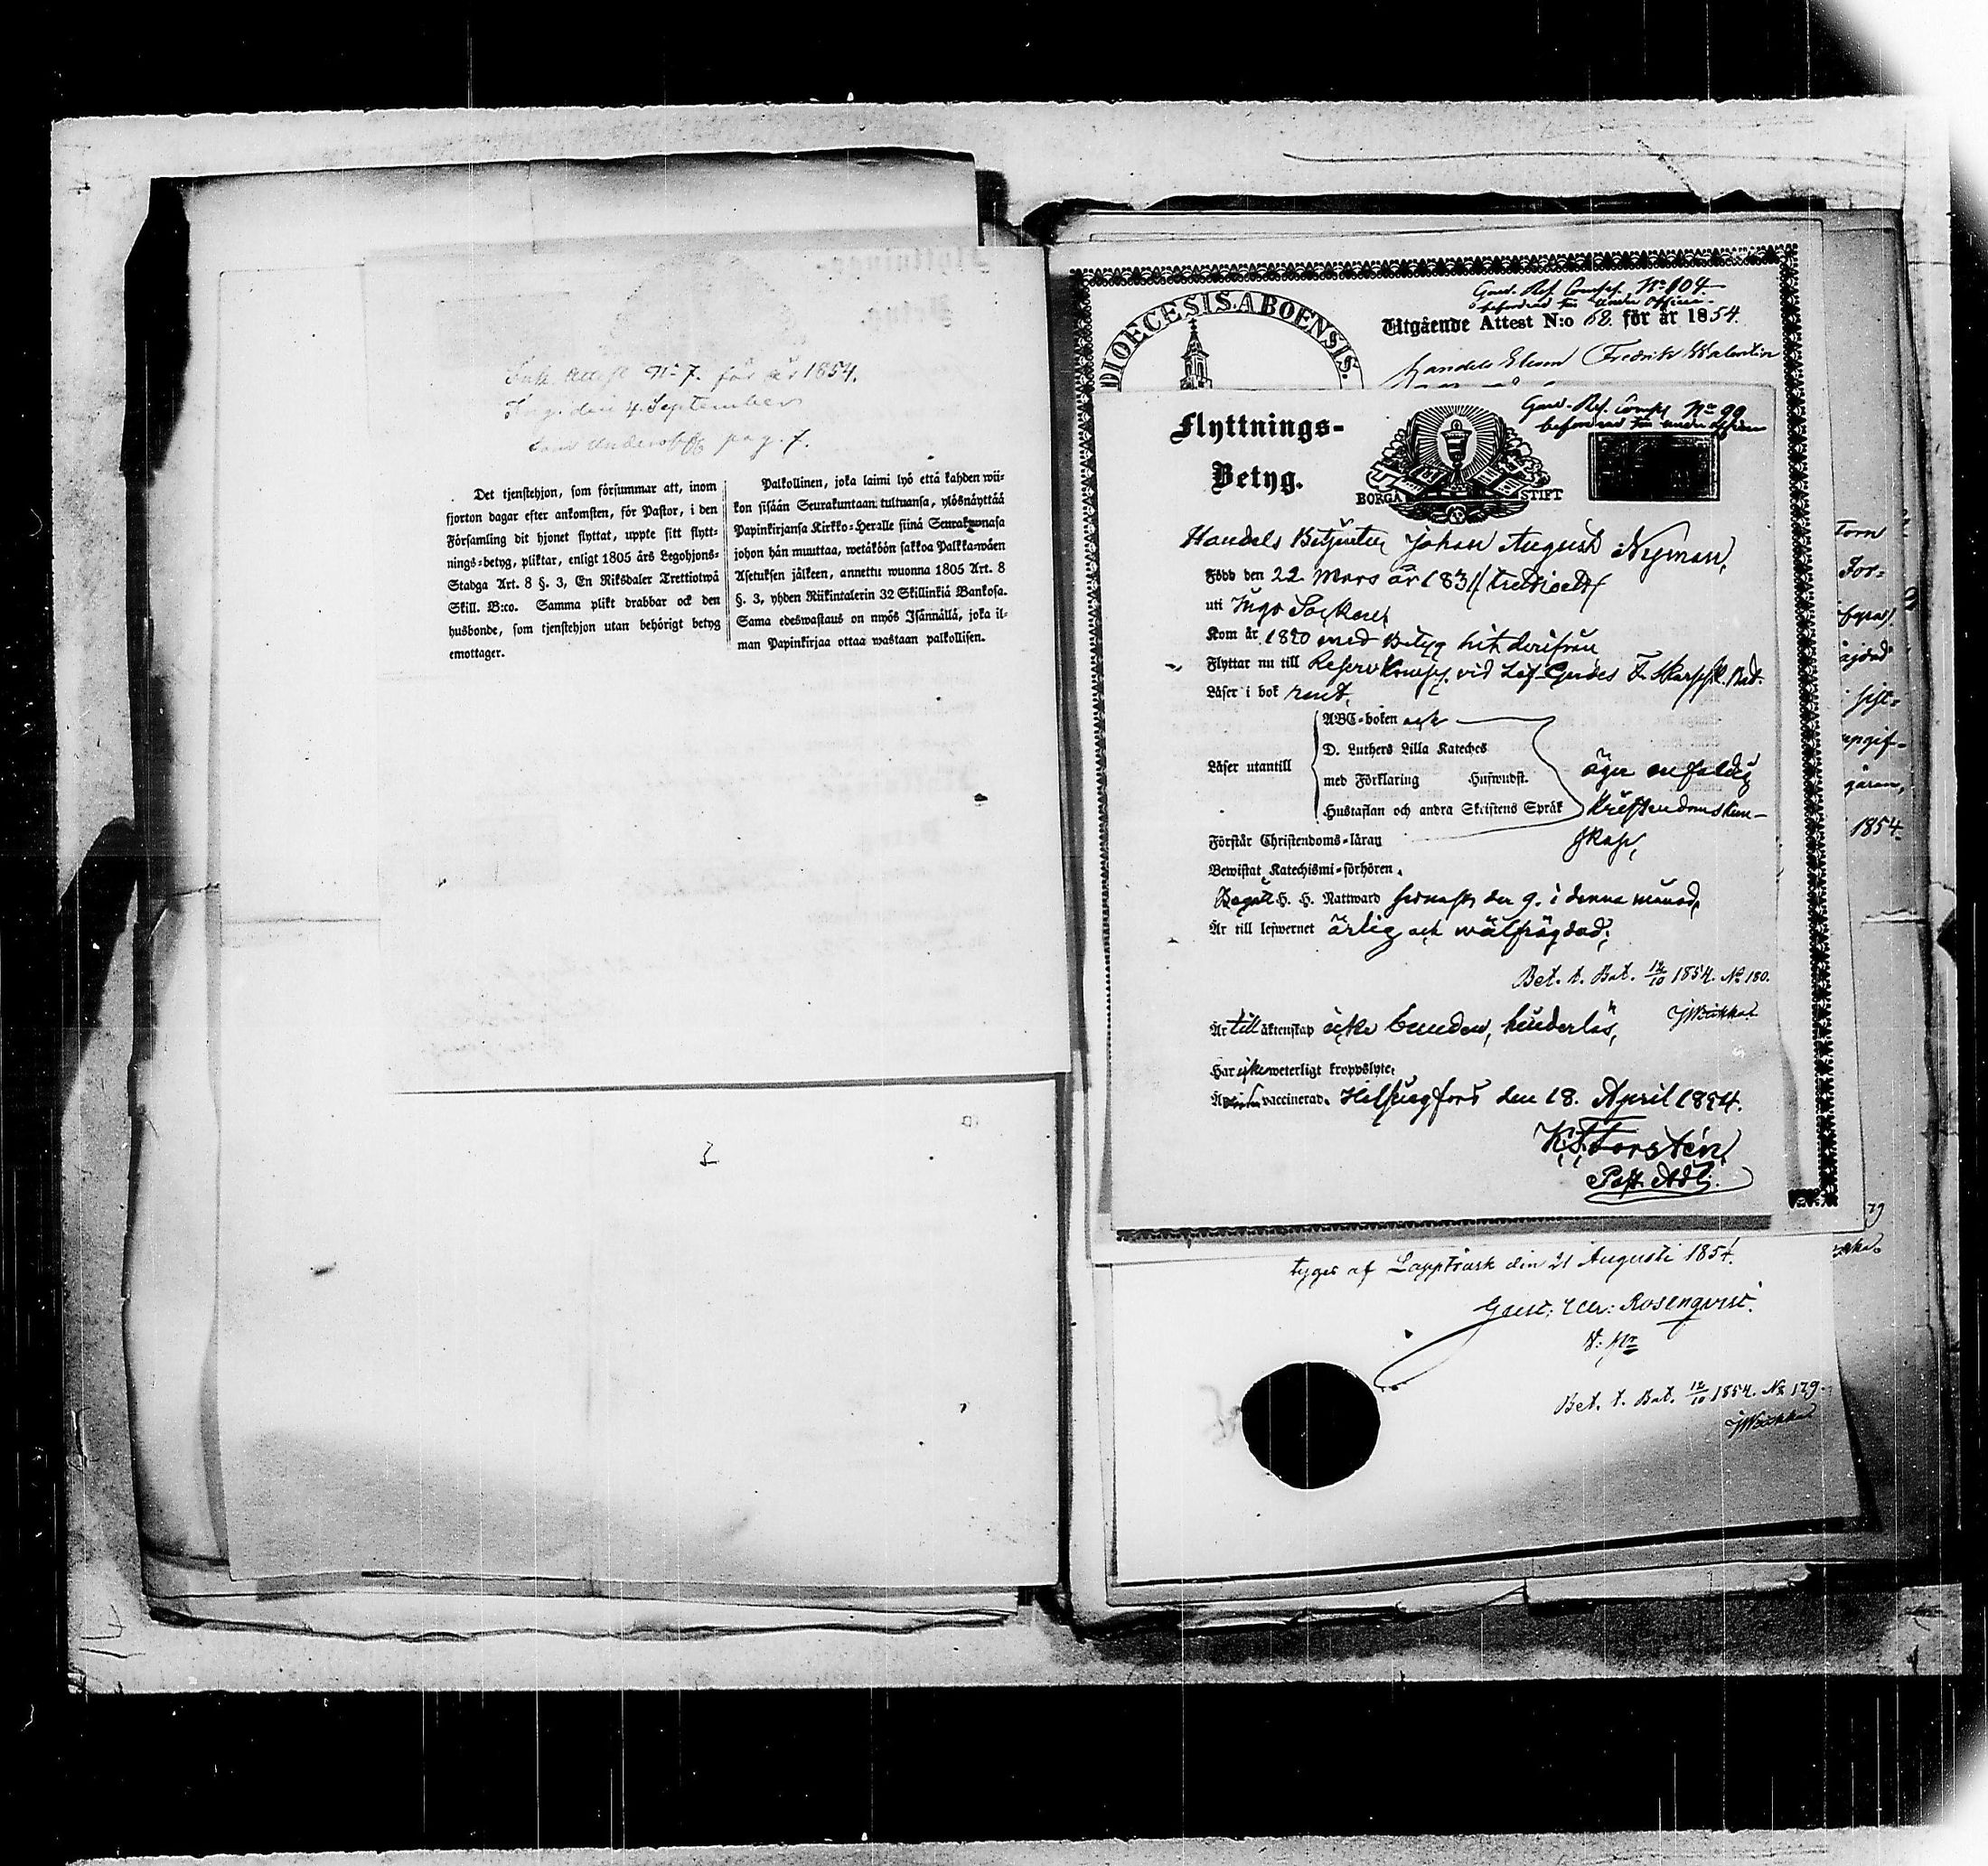 Ink. Attest No 7. för år 1854.
Ing. den 4. September
pag. 7.
Det tjenstehjon, som försummar att, inom
fjorton dagar efter ankomsten, för Pastor, i den
Församling dit hjonet flyttat, uppte sitt flytt-
nings-betyg, pliktar, enligt 1805 års Legohjons-
Stadga Art. 8 §. 3, En Riksdaler Trettiotwå
Skill. B:co. Samma plikt drabbar ock den
husbonde, som tjenstehjon utan behörigt betyg
emottager.
Palkollinen, joka laimi lyö että kahden wii-
kon sisään Seurakuntaan tultuansa, ylösnäyttää
Papinkirjansa Kirkko-Heralle siinä Seurakunnasa
johon hän muuttaa, wetäköön sakkoa Palkka-wäen
Asetuksen jälkeen, annettu wuonna 1805 Art. 8
§. 3, yhden Riikintalerin 32 Skillinkiä Bankosa.
Sama edeswastaus on myös Isännällä, joka il-
man Papinkirjaa ottaa wastaan palkollisen.
DIOECESIS.ABOENSIS.
Gard. Res. Comp. No 104
befordrad till under officer.
Utgående Attest N:o 68. för år 1854.
Handels Fredrik Walentin
Flyttnings-
Betyg.
BORGÅ STIFT
Gard. Res. Comp. No 99
befordrad till under officer
Handels Betjenten Johan August Nyman,
Född den 22 Mars år 1831 (trettioett)
uti Ingo Socken,
Kom år 1850 med Betyg hit derifrån
Flyttar nu till Reserv Komp. vid Lif-Gardes F. Skarpsk. Bat.
Läser i bok rent,
Läser utantill
ABC-boken och
D. Luthers Lilla Kateches
med Förklaring Huswudst.
Hustaflan och andra Skriftens Språk
äger enfaldig
Kristendomskun-
skap,
Förstår Christendoms-läran
Bewistat Katechismi-förhören.
Begått H. H. Nattward senast den 9. i denna månad,
Är till lefwernet ärlig och wälfrägdad;
Bet. t. Bat. 12/10 1854. No 180.
Är till äktenskap icke bunden, hinderlös,
Har icke weterligt kroppslyte;
Är vaccinerad. Helsingfors den 18. April 1854.
K. F. Forstén,
Past. Adj.
tyges af Lappträsk den 21 Augusti 1854.
Rosenqvist.
Bet. t. Bat. 12/10 1854. No 179.
För-
1854.